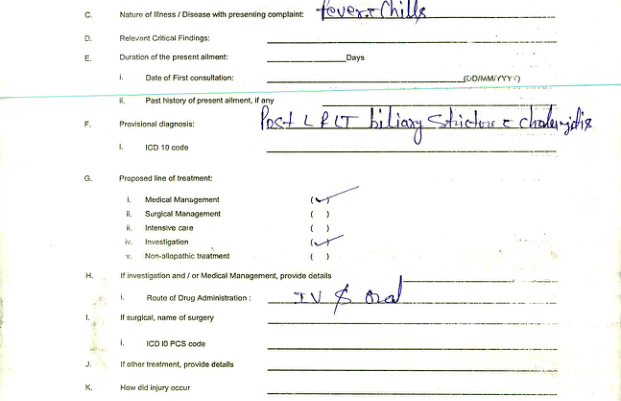 C. Nature of Illness / Disease with presenting complaint: fever c chills
D. Relevant Critical Findings:
E. Duration of the present ailment: Days
i. Date of First consultation: (DD/MM/YYYY)
ii. Past history of present ailment, if any
F. Provisional diagnosis: Post LRLT biliary stricture c cholangitis
i. ICD 10 code
G. Proposed line of treatment:
i. Medical Management (✓)
ii. Surgical Management ( )
ii. Intensive care ( )
iv. Investigation (✓)
v. Non-allopathic treatment ( )
H. If investigation and / or Medical Management, provide details
i. Route of Drug Administration : IV & Oral
I. If surgical, name of surgery
i. ICD I0 PCS code
J. If other treatment, provide details
K. How did injury occur